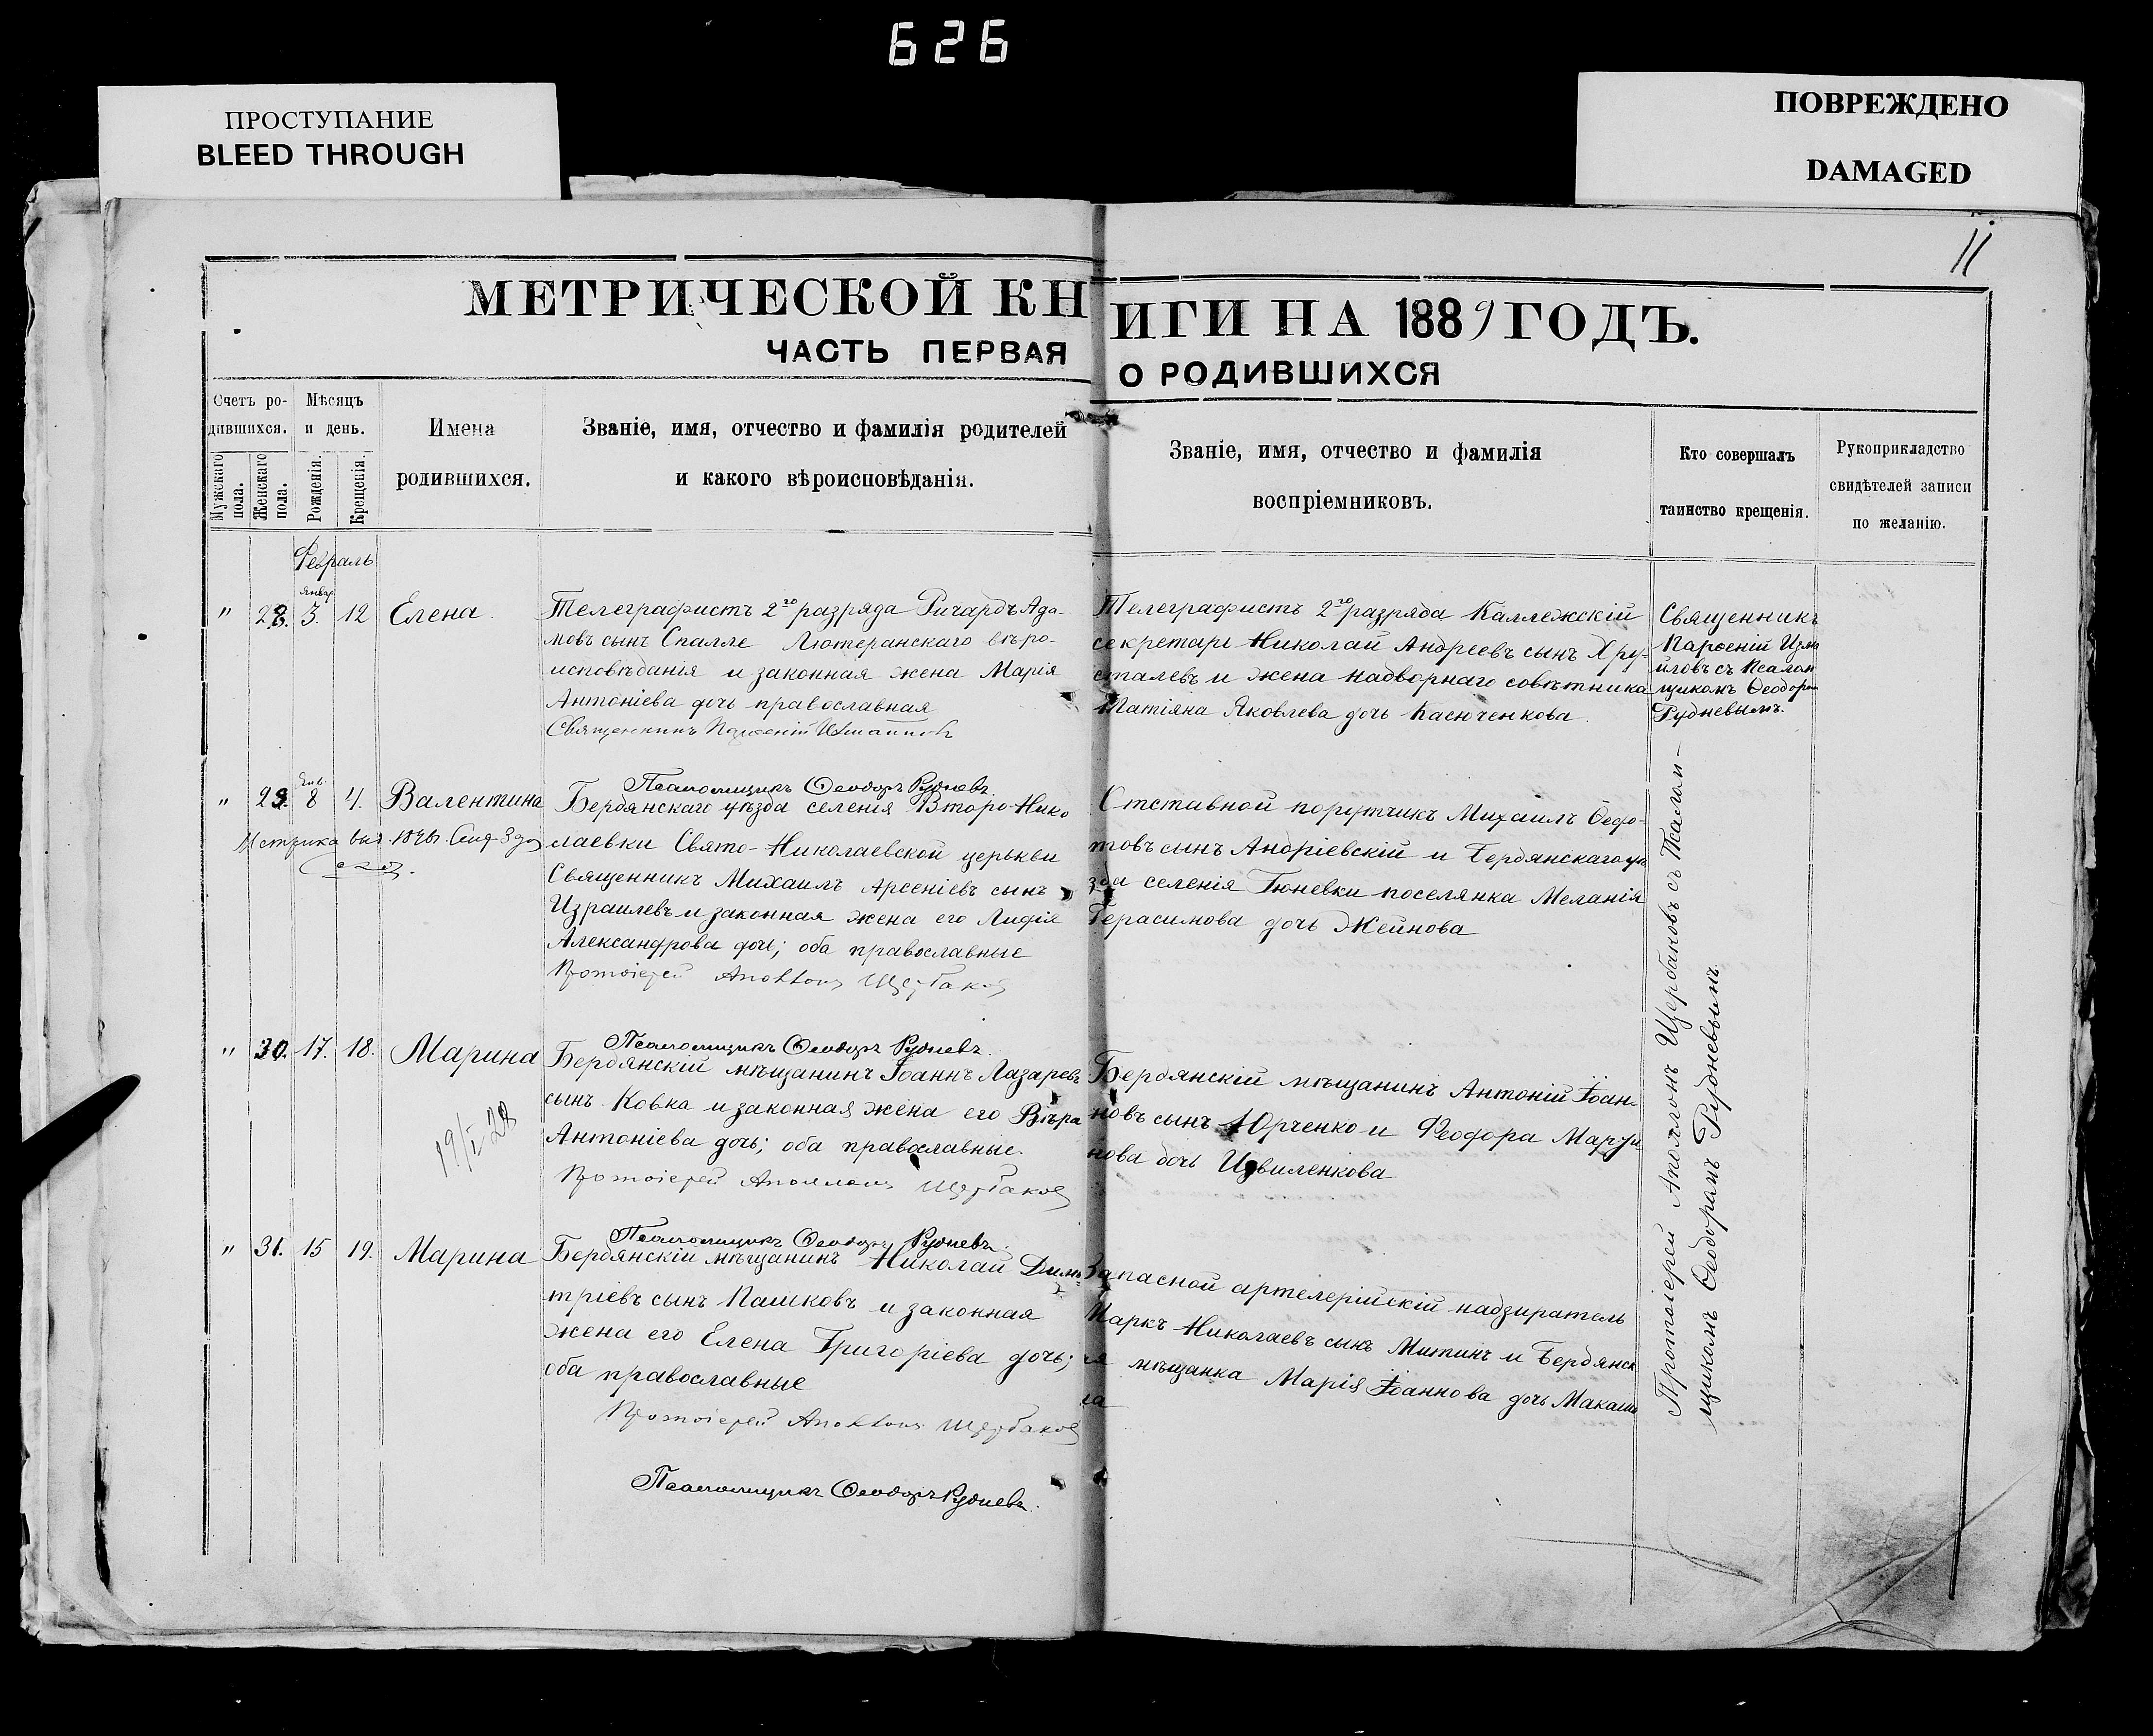 626
ПРОСТУПАНИЕ
BLEED THROUGH
ПОВРЕЖДЕНО
DAMAGED
11
МЕТРИЧЕСКОЙ КНИГИ НА 1889 ГОДЪ.
ЧАСТЬ ПЕРВАЯ О РОДИВШИХСЯ
Счетъ ро-
дившихся.
Мужскаго
пола.
Женскаго
пола.
Мѣсяцъ
и день.
Рожденія.
Крещенія.
Имена
родившихся.
Званіе, имя, отчество и фамилія родителей
и какого вѣроисповѣданія.
Званіе, имя, отчество и фамилія
воспріемниковъ.
Кто совершалъ
таинство крещенія.
Рукоприкладство
свидѣтелей записи
по желанію.
Февраль
Январ
" 28. 3. 12 Елена.
Телеграфистъ 2го разряда Ричардъ Ада-
мовъ сынъ Спалле Лютеранскаго вѣро-
исповѣданія и законная жена Марія
Антоніева дочь православная
Священникъ Парѳеній Измаиловъ
Псаломщикъ Ѳеодоръ Рудневъ.
Телеграфистъ 2го разряда Каллежскій
секретарь Николай Андреевъ сынъ Хру-
сталевъ и жена надворнаго совѣтника
Татіяна Яковлева дочь Касюченкова.
Священникъ
Парѳеній Изма
иловъ съ Псалом
щикомъ Ѳеодоромъ
Рудневымъ.
Янв.
" 29. 8 4. Валентина
Метрика выд. 1896. Сент 3 дня
Бердянскаго уѣзда селенія Второ-Нико
лаевки Свято-Николаевской церькви
Священникъ Михаилъ Арсеніевъ сынъ
Израилевъ и законная жена его Лидія
Александрова дочь; оба православные
Протоіерей Аполлонъ Щербаковъ
Псаломщикъ Ѳеодоръ Рудневъ.
Отставной порутчикъ Михаилъ Ѳедо-
товъ сынъ Андріевскій и Бердянскаго уѣ
зда селенія Гюневки поселянка Меланія
Герасимова дочь Жейнова
" 30. 17. 18. Марина
19/I 28
Бердянскій мѣщанинъ Іоаннъ Лазаревъ
сынъ Ковка и законная жена его Вѣра
Антоніева дочь; оба православные.
Протоіерей Аполлонъ Щербаковъ
Псаломщикъ Ѳеодоръ Рудневъ.
Бердянскій мѣщанинъ Антоній Іоан-
новъ сынъ Юрченко и Феодора Марти-
нова дочь Цвиленкова
" 31. 15 19. Марина
Бердянскій мѣщанинъ Николай Дими-
тріевъ сынъ Пашковъ и законная
жена его Елена Григоріева дочь;
оба православные
Протоіерей Аполлонъ Щербаковъ
Псаломщикъ Ѳеодоръ Рудневъ.
Запасной артелерійскій надзиратель
Маркъ Николаевъ сынъ Митинъ и Бердянск
ая мѣщанка Марія Іоаннова дочь Макаше
ва
Протоіерей Аполлонъ Щербаковъ съ Псалом-
щикомъ Ѳеодоромъ Рудневымъ.